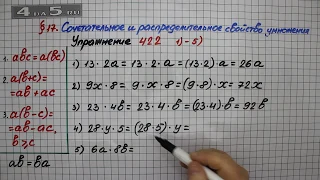 4 на 5.ru
§17. Сочетательное и распределительное свойство умножения
Упражнение 422 1)-5)
1. abc = a(bc)
2. a(b+c)=
=ab+ac
3. a(b-c)=
=ab-ac,
b>c
ab=ba
1) 13·2a = 13·2·a = (13·2)·a = 26a
2) 9x·8 = 9·x·8 = (9·8)·x = 72x
3) 23·4b = 23·4·b = (23·4)·b = 92b
4) 28·y·5 = (28·5)·y =
5) 6a·8b =